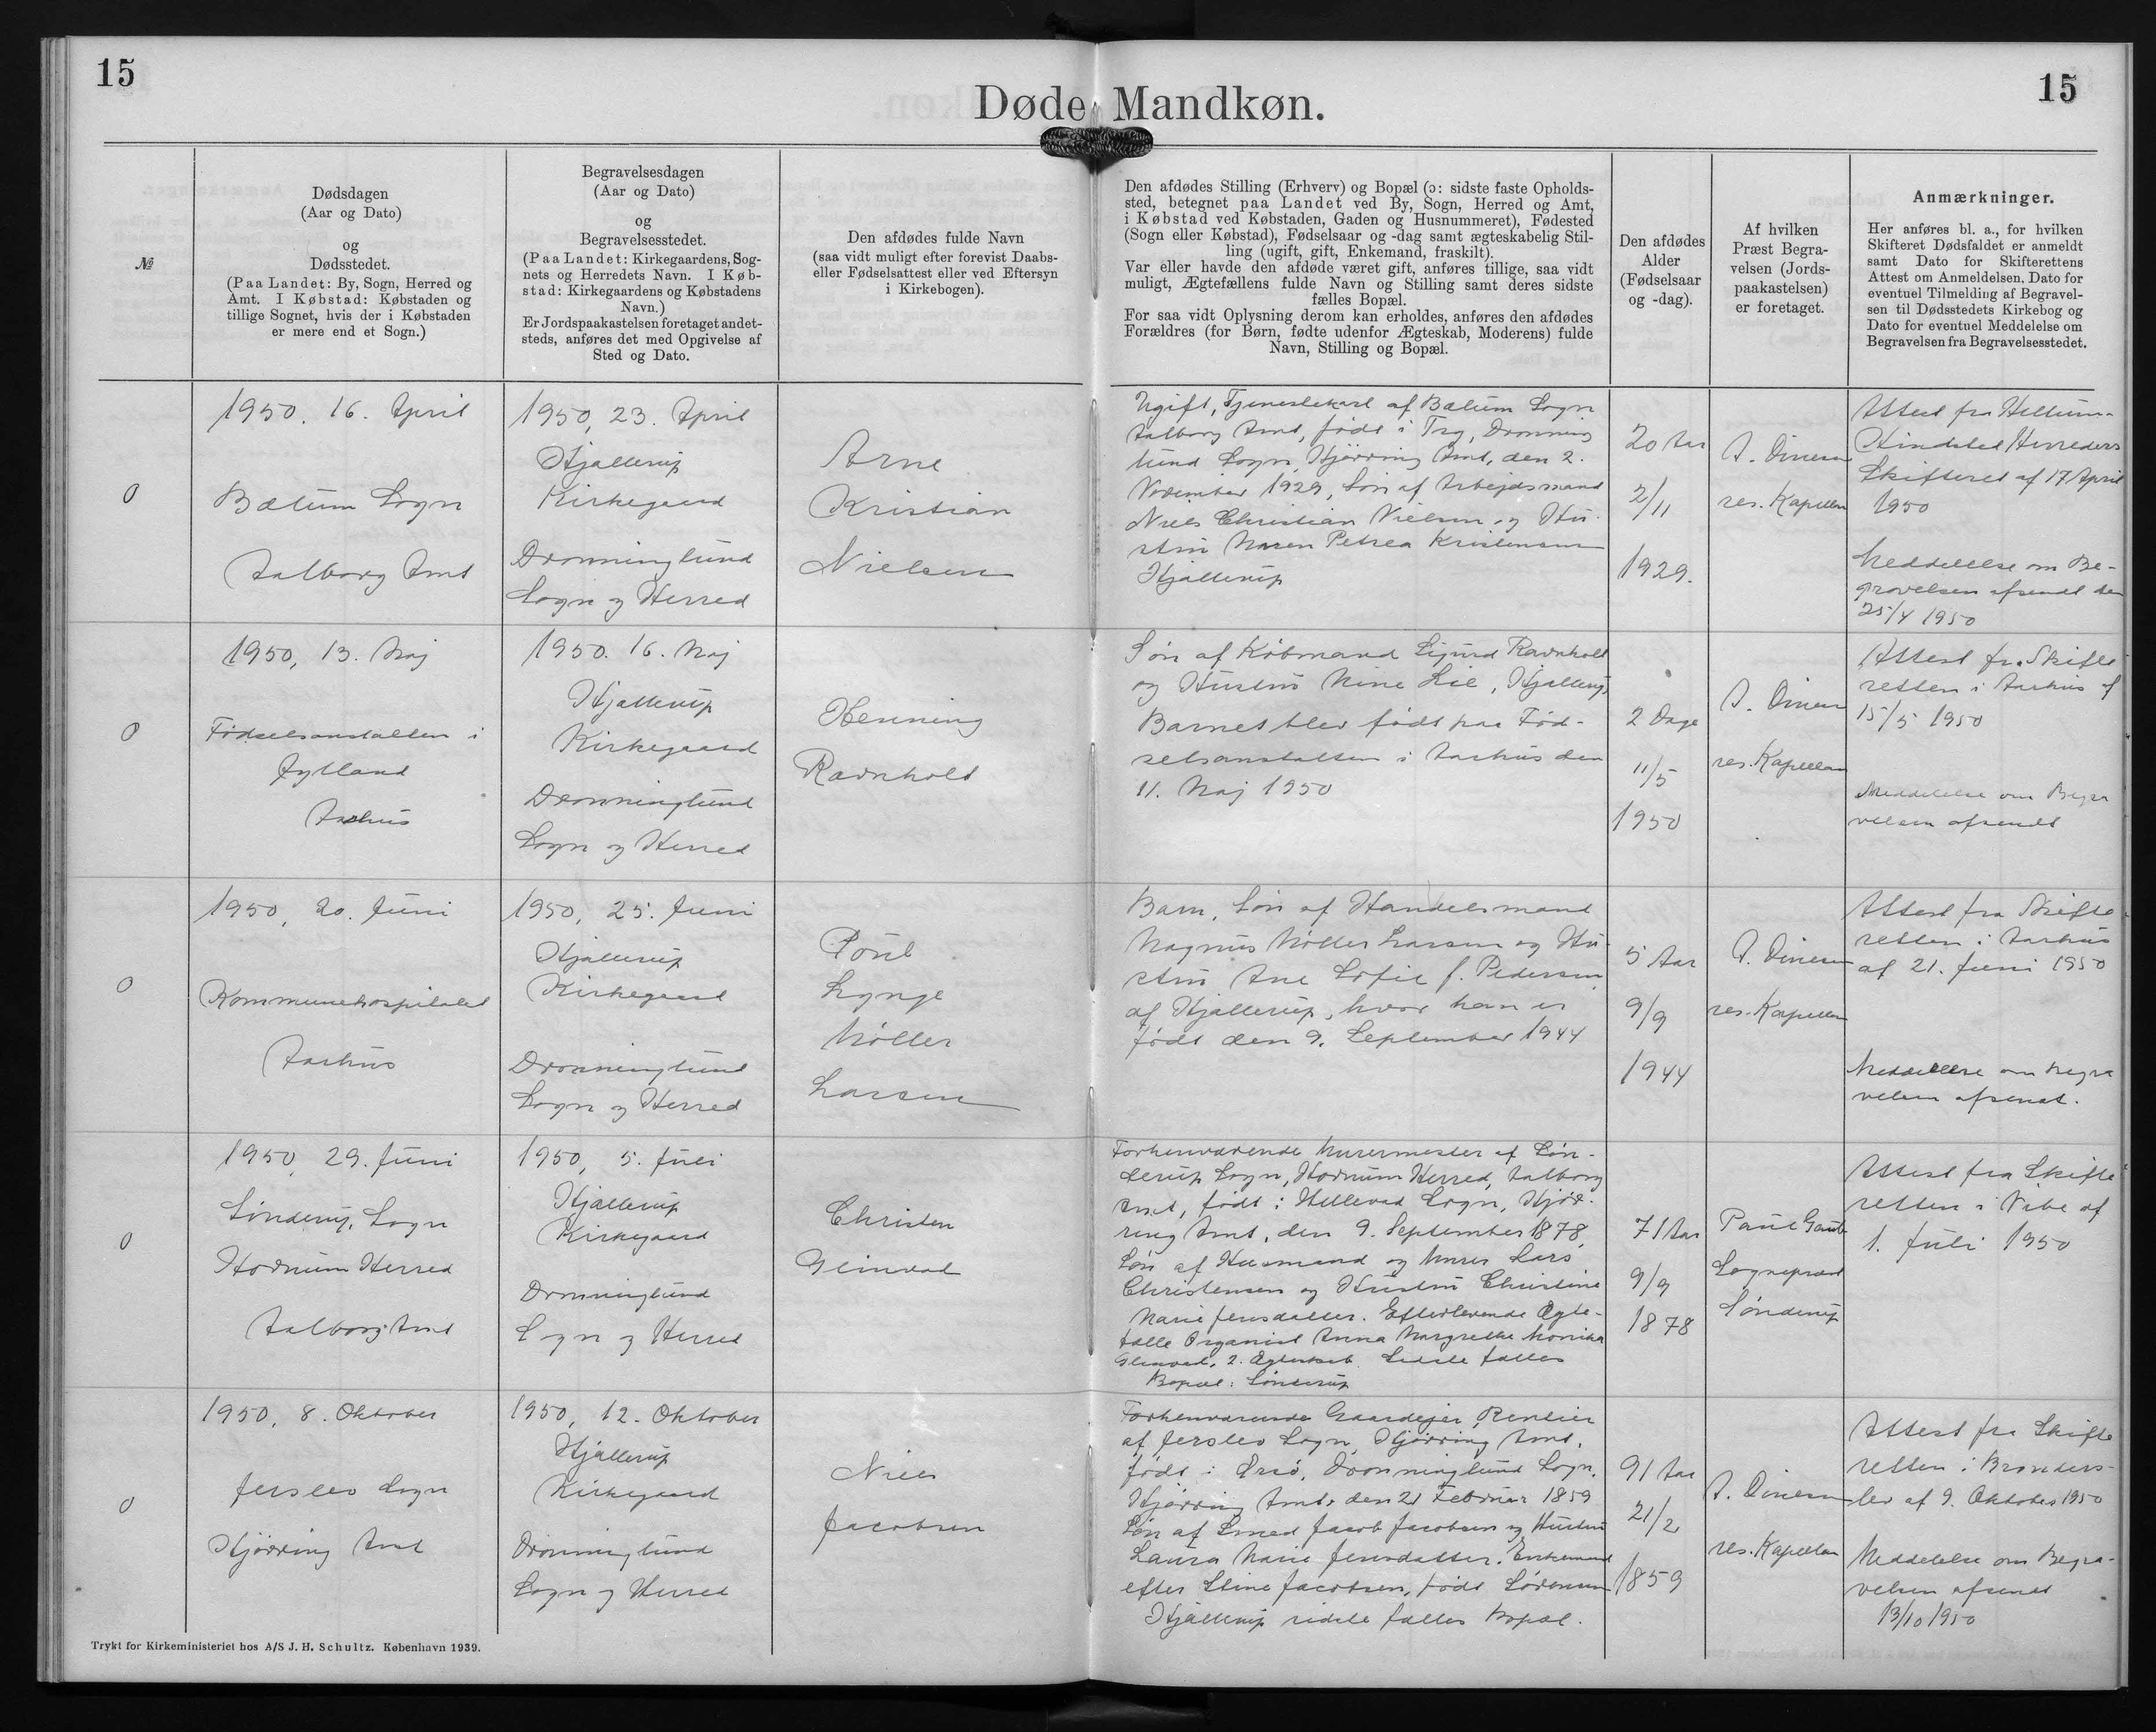 15
15
Døde Mandkøn.
№
Dødsdagen
(Aar og Dato)
og
Dødsstedet.
(Paa Landet: By, Sogn, Herred og
Amt. I Købstad: Købstaden og
tillige Sognet, hvis der i Købstaden
er mere end et Sogn.)
Begravelsesdagen
(Aar og Dato)
og
Begravelsesstedet.
(Paa Landet: Kirkegaardens, Sog-
nets og Herredets Navn. I Køb-
stad: Kirkegaardens og Købstadens
Navn.)
Er Jordspaakastelsen foretaget andet-
steds, anføres det med Opgivelse af
Sted og Dato.
Den afdødes fulde Navn
(saa vidt muligt efter forevist Daabs-
eller Fødselsattest eller ved Eftersyn
i Kirkebogen).
Den afdødes Stilling (Erhverv) og Bopæl (ɔ: sidste faste Opholds-
sted, betegnet paa Landet ved By, Sogn, Herred og Amt,
i Købstad ved Købstaden, Gaden og Husnummeret), Fødested
(Sogn eller Købstad), Fødselsaar og -dag samt ægteskabelig Stil-
ling (ugift, gift, Enkemand, fraskilt).
Var eller havde den afdøde været gift, anføres tillige, saa vidt
muligt, Ægtefællens fulde Navn og Stilling samt deres sidste
fælles Bopæl.
For saa vidt Oplysning derom kan erholdes, anføres den afdødes
Forældres (for Børn, fødte udenfor Ægteskab, Moderens) fulde
Navn, Stilling og Bopæl.
Den afdødes
Alder
(Fødselsaar
og -dag).
Af hvilken
Præst Begra-
velsen (Jords-
paakastelsen)
er foretaget.
Anmærkninger.
Her anføres bl. a., for hvilken
Skifteret Dødsfaldet er anmeldt
samt Dato for Skifterettens
Attest om Anmeldelsen, Dato for
eventuel Tilmelding af Begravel-
sen til Dødsstedets Kirkebog og
Dato for eventuel Meddelelse om
Begravelsen fra Begravelsesstedet.
0
1950. 16. April
Bælum Sogn
Aalborg Amt
1950, 23. April
Hjallerup
Kirkegaard
Dronninglund
Sogn og Herred
Arne
Kristian
Nielsen
Ugift, Tjenestekarl af Bælum Sogn
Aalborg Amt, født i Try, Dronning
lund Sogn, Hjørring Amt, den 2.
November 1929, Søn af Arbejdsmand
Niels Christian Nielsen og Hu-
stru Maren Petrea Kristensen
Hjallerup
20 Aar
2/11
1929.
A. Dinesen
res. Kapellan
Attest fra Hellum-
Hindsted Herreders
Skifteret af 17 April
1950
Meddelelse om Be-
gravelsen afsendt den
25/4 1950
0
1950, 13. Maj
Fødselsanstalten i
Jylland
Aarhus
1950. 16. Maj
Hjallerup
Kirkegaard
Dronninglund
Sogn og Herred
Henning
Ravnholt
Søn af Købmand Sigurd Ravnholt
og Hustru Mine Lie, Hjallerup,
Barnet blev født paa Fød-
selsanstalten i Aarhus den
11. Maj 1950
2 Dage
11/5
1950
A. Dinesen
res. Kapellan
Attest fra Skifte
retten i Aarhus af
15/5 1950
Meddelelse om Begra
velsen afsendt
0
1950, 20. Juni
Kommunehospitalet
Aarhus
1950, 25. Juni
Hjallerup
Kirkegaard
Dronninglund
Sogn og Herred
Poul
Lynge
Møller
Larsen
Barn, Søn af Handelsmand
Magnus Møller Larsen og Hu-
stru Ane Sofie f. Pedersen,
af Hjallerup, hvor han er
født den 9. September 1944
5 Aar
9/9
1944
A. Dinesen
res. Kapellan
Attest fra Skifte
retten i Aarhus
af 21. Juni 1950
Meddelelse om Begra
velsen afsendt.
0
1950, 29. Juni
Sønderup Sogn
Hornum Herred
Aalborg Amt
1950, 5. Juli
Hjallerup
Kirkegaard
Dronninglund
Sogn og Herred
Christen
Glinvad
Forhenværende Murermester af Søn-
derup Sogn, Hornum Herred, Aalborg
Amt, født i Hellevad Sogn, Hjør-
ring Amt, den 9. September 1878
Søn af Husmand og Murer Lars
Christensen og Hustru Christine
Marie Jensdatter. Efterlevende Ægte-
fælle Organist Anna Margrethe Monika
Glinvad, 2. Ægteskab. Sidste fælles
Bopæl: Sønderup
71 Aar
9/9
1878
Sognepræst
Sønderup
Attest fra Skifte
retten i Nibe af
1. Juli 1950
0
1950, 8. Oktober
Jerslev Sogn
Hjørring Amt
1950, 12. Oktober
Hjallerup
Kirkegaard
Dronninglund
Sogn og Herred
Niels
Jacobsen
Forhenværende Gaardejer, Rentier
af Jerslev Sogn, Hjørring Amt,
født i Ørsø, Dronninglund Sogn,
Hjørring Amt, den 21 Februar 1859
Søn af Smed Jacob Jacobsen og Hustru
Laura Marie Jensdatter. Enkemand
efter Stine Jacobsen, født Sørensen
Hjallerup sidste fælles Bopæl.
91 Aar
21/2
1859
A. Dinesen
res. Kapellan
Attest fra Skifte
retten i Brønders-
lev af 9. Oktober 1950
Meddelelse om Begra-
velsen afsendt
13/10 1950
Trykt for Kirkeministeriet hos A/S J. H. Schultz. København 1939.